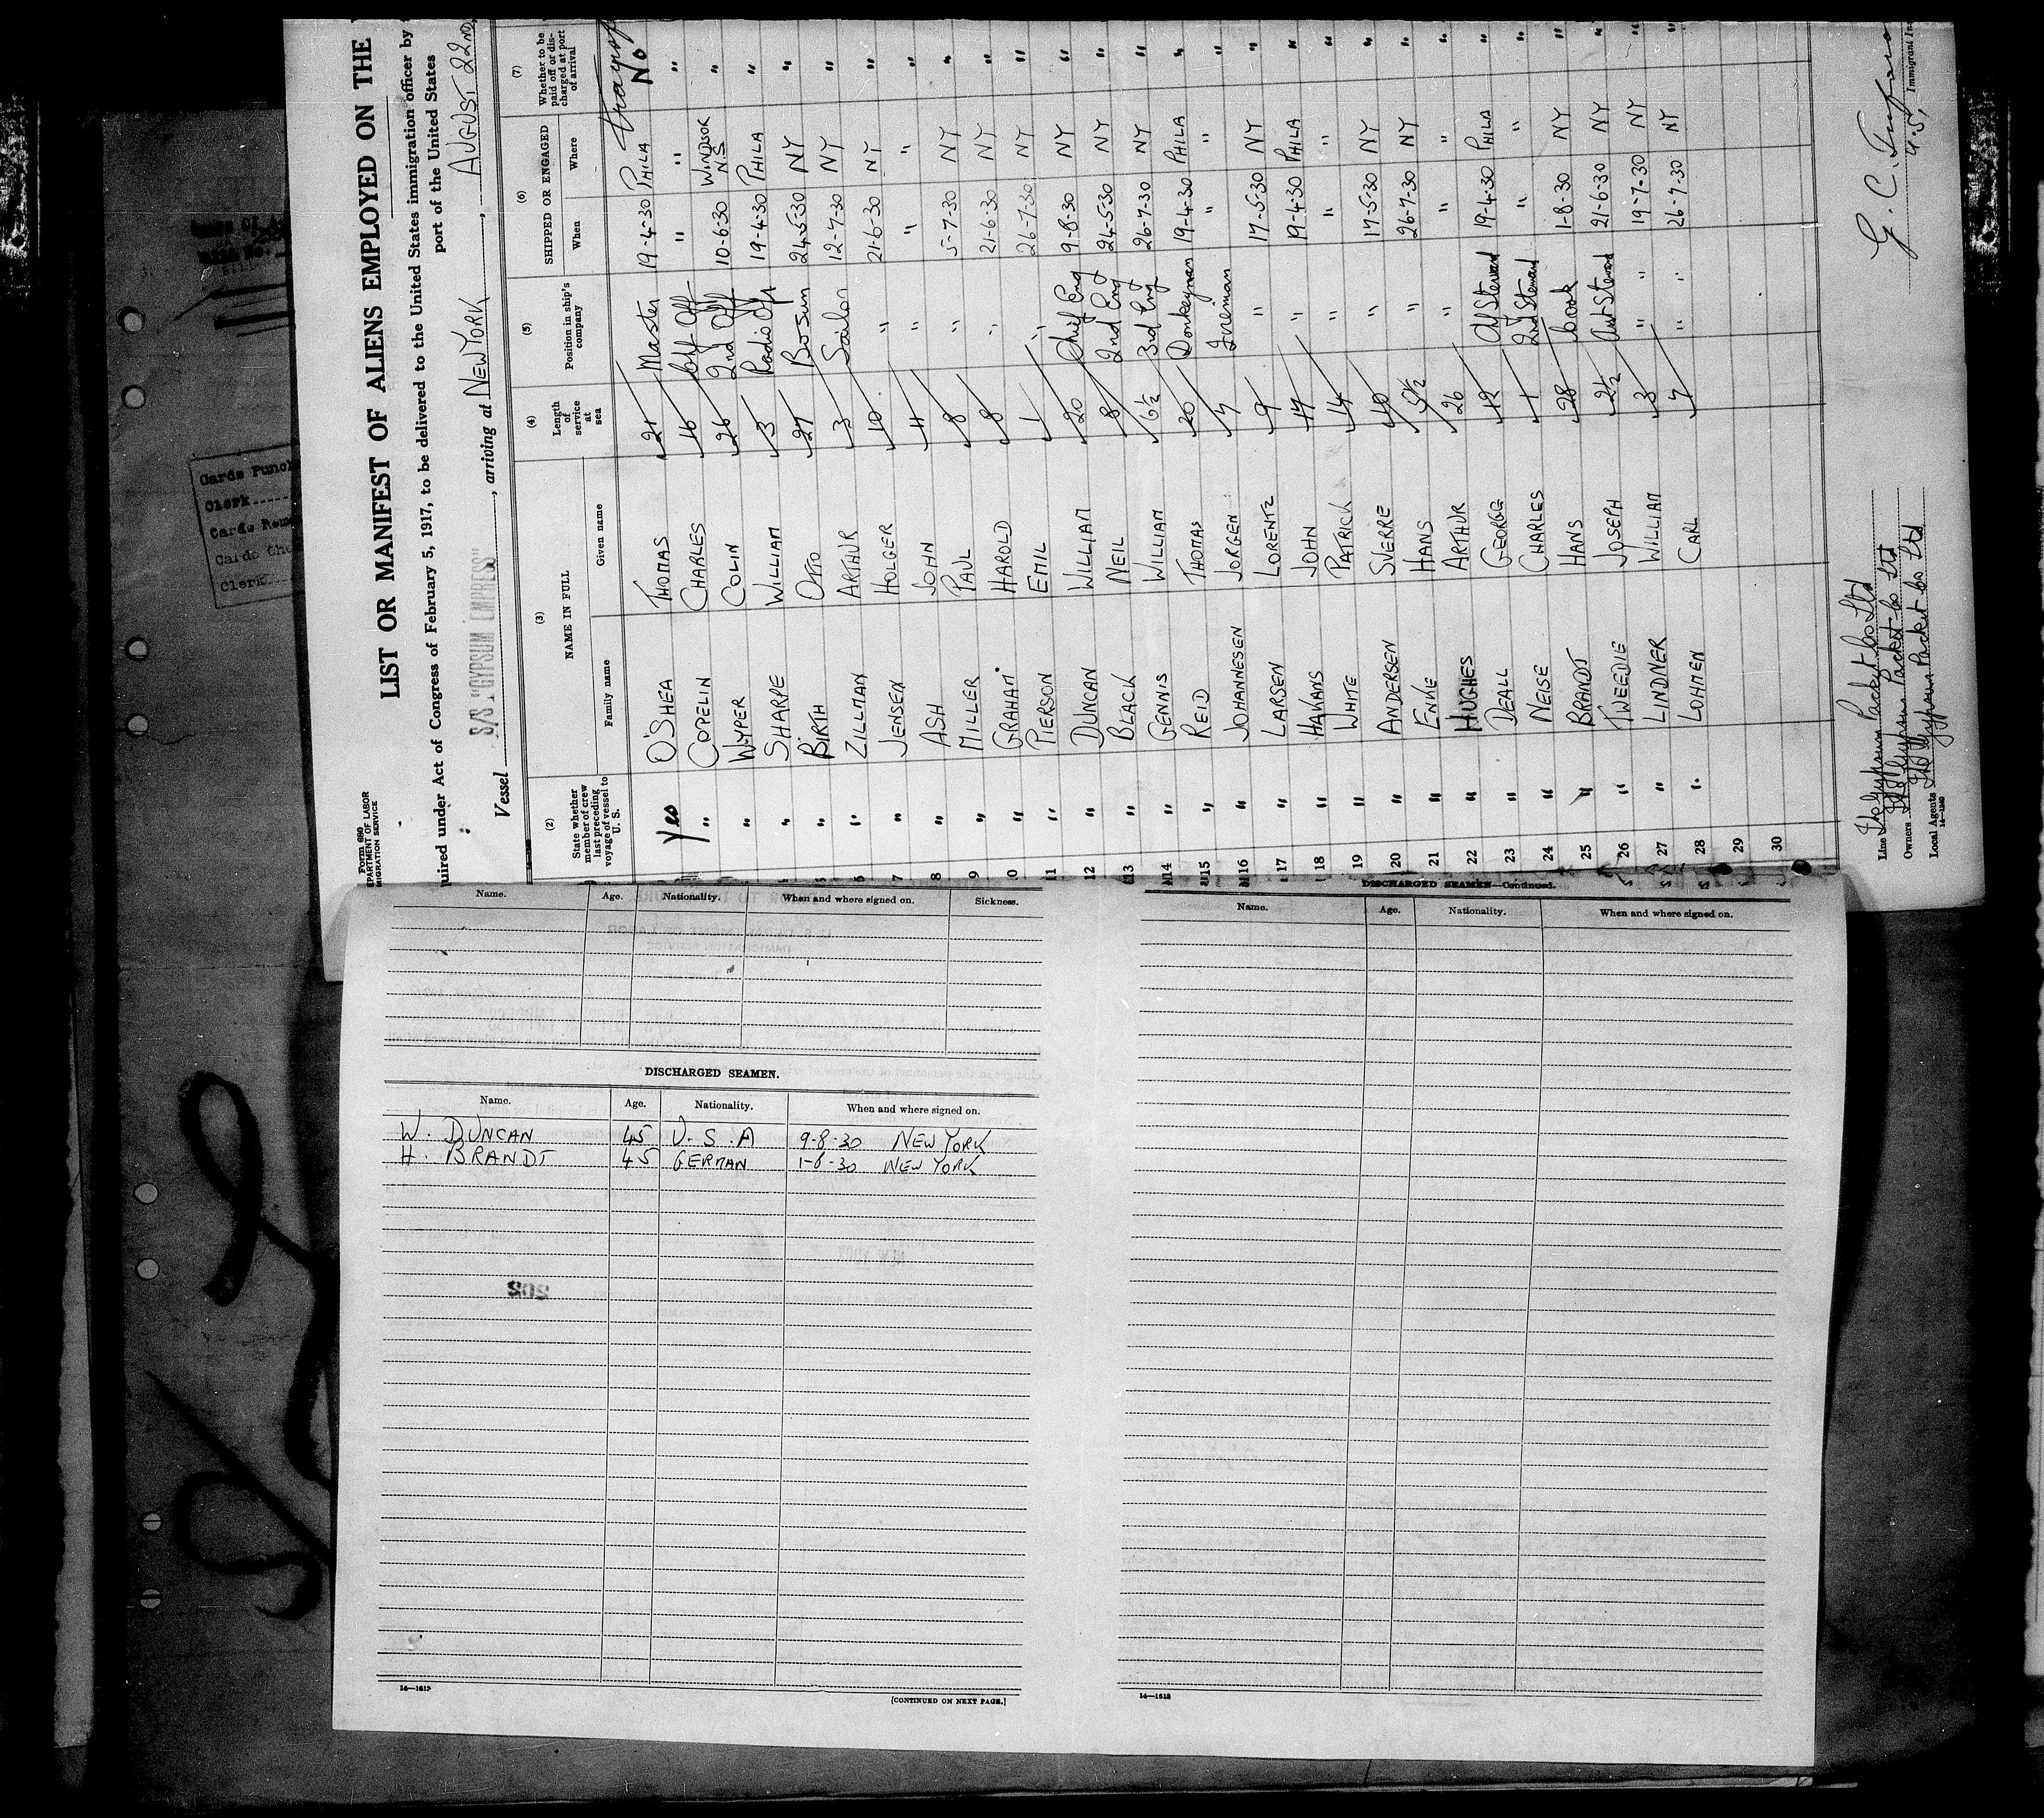 Form 680
DEPARTMENT OF LABOR
IMMIGRATION SERVICE
LIST OR MANIFEST OF ALIENS EMPLOYED ON THE
quired under Act of Congress of February 5, 1917, to be delivered to the United States immigration officer by
port of the United States
Vessel S/S "GYPSUM EMPRESS", arriving at NEW YORK, AUGUST 22ND,
(2) (3) (4) (5) (6) (7)
State whether member of crew last preceding voyage of vessel to U. S. NAME IN FULL Length of service at sea Position in ship's company SHIPPED OR ENGAGED Whether to be paid off or discharged at port of arrival
Family name Given name When Where
Yes O'SHEA THOMAS 21 Master 19-4-30 PHILA No
" COPELIN CHARLES 16 Chf Off " " "
" WYPER COLIN 26 2nd Off 10-6-30 WINDSOR N.S "
" SHARPE WILLIAM 3 Radio Opr 19-4-30 PHILA "
" BIRTH OTTO 27 Bosun 24-5-30 NY "
6 " ZILLMAN ARTHUR 3 Sailor 12-7-30 NY "
7 " JENSEN HOLGER 10 " 21-6-30 NY "
8 " ASH JOHN 11 " " " "
9 " MILLER PAUL 8 " 5-7-30 NY "
10 " GRAHAM HAROLD 8 " 21-6-30 NY "
11 " PIERSON EMIL 1 " 26-7-30 NY "
12 " DUNCAN WILLIAM 20 Chief Eng 9-8-30 NY "
13 " BLACK NEIL 8 2nd Eng 24-5-30 NY "
14 " GENNIS WILLIAM 6½ 3rd Eng 26-7-30 NY "
15 " REID THOMAS 20 Donkeyman 19-4-30 PHILA "
16 " JOHANNESEN JORGEN 7 Fireman " " "
17 " LARSEN LORENTZ 9 " 17-5-30 NY "
18 " HAVANS JOHN 17 " 19-4-30 PHILA "
19 " WHITE PATRICK 14 " " " "
20 " ANDERSEN SVERRE 10 " 17-5-30 NY "
21 " ENKE HANS 5½ " 26-7-30 NY "
22 " HUGHES ARTHUR 26 " " " "
23 " DEALL GEORGE 12 Ch Steward 19-4-30 PHILA "
24 " NEISE CHARLES 1 2nd Steward " " "
25 " BRANDT HANS 28 Cook 1-8-30 NY "
26 " TWEEDIE JOSEPH 2½ Asst Steward 21-6-30 NY "
27 " LINDNER WILLIAM 3 " 19-7-30 NY "
28 " LOHMEN CARL 7 " 26-7-30 NY
29
30
Line The Gypsum Packet Co Ltd
Owners The Gypsum Packet Co Ltd
Local Agents The Gypsum Packet Co Ltd
14—1240
Immigrant In
Cards Punch
Clerk
Cards
Cards Che
Clerk
Name. Age. Nationality. When and where signed on. Sickness.
DISCHARGED SEAMEN.
Name. Age. Nationality. When and where signed on.
W. DUNCAN 45 U.S.A 9-8-30 NEW YORK
H. BRANDT 45 GERMAN 1-8-30 NEW YORK
14—1613
[CONTINUED ON NEXT PAGE.]
DISCHARGED SEAMEN—Continued.
Name. Age. Nationality. When and where signed on.
14—1613